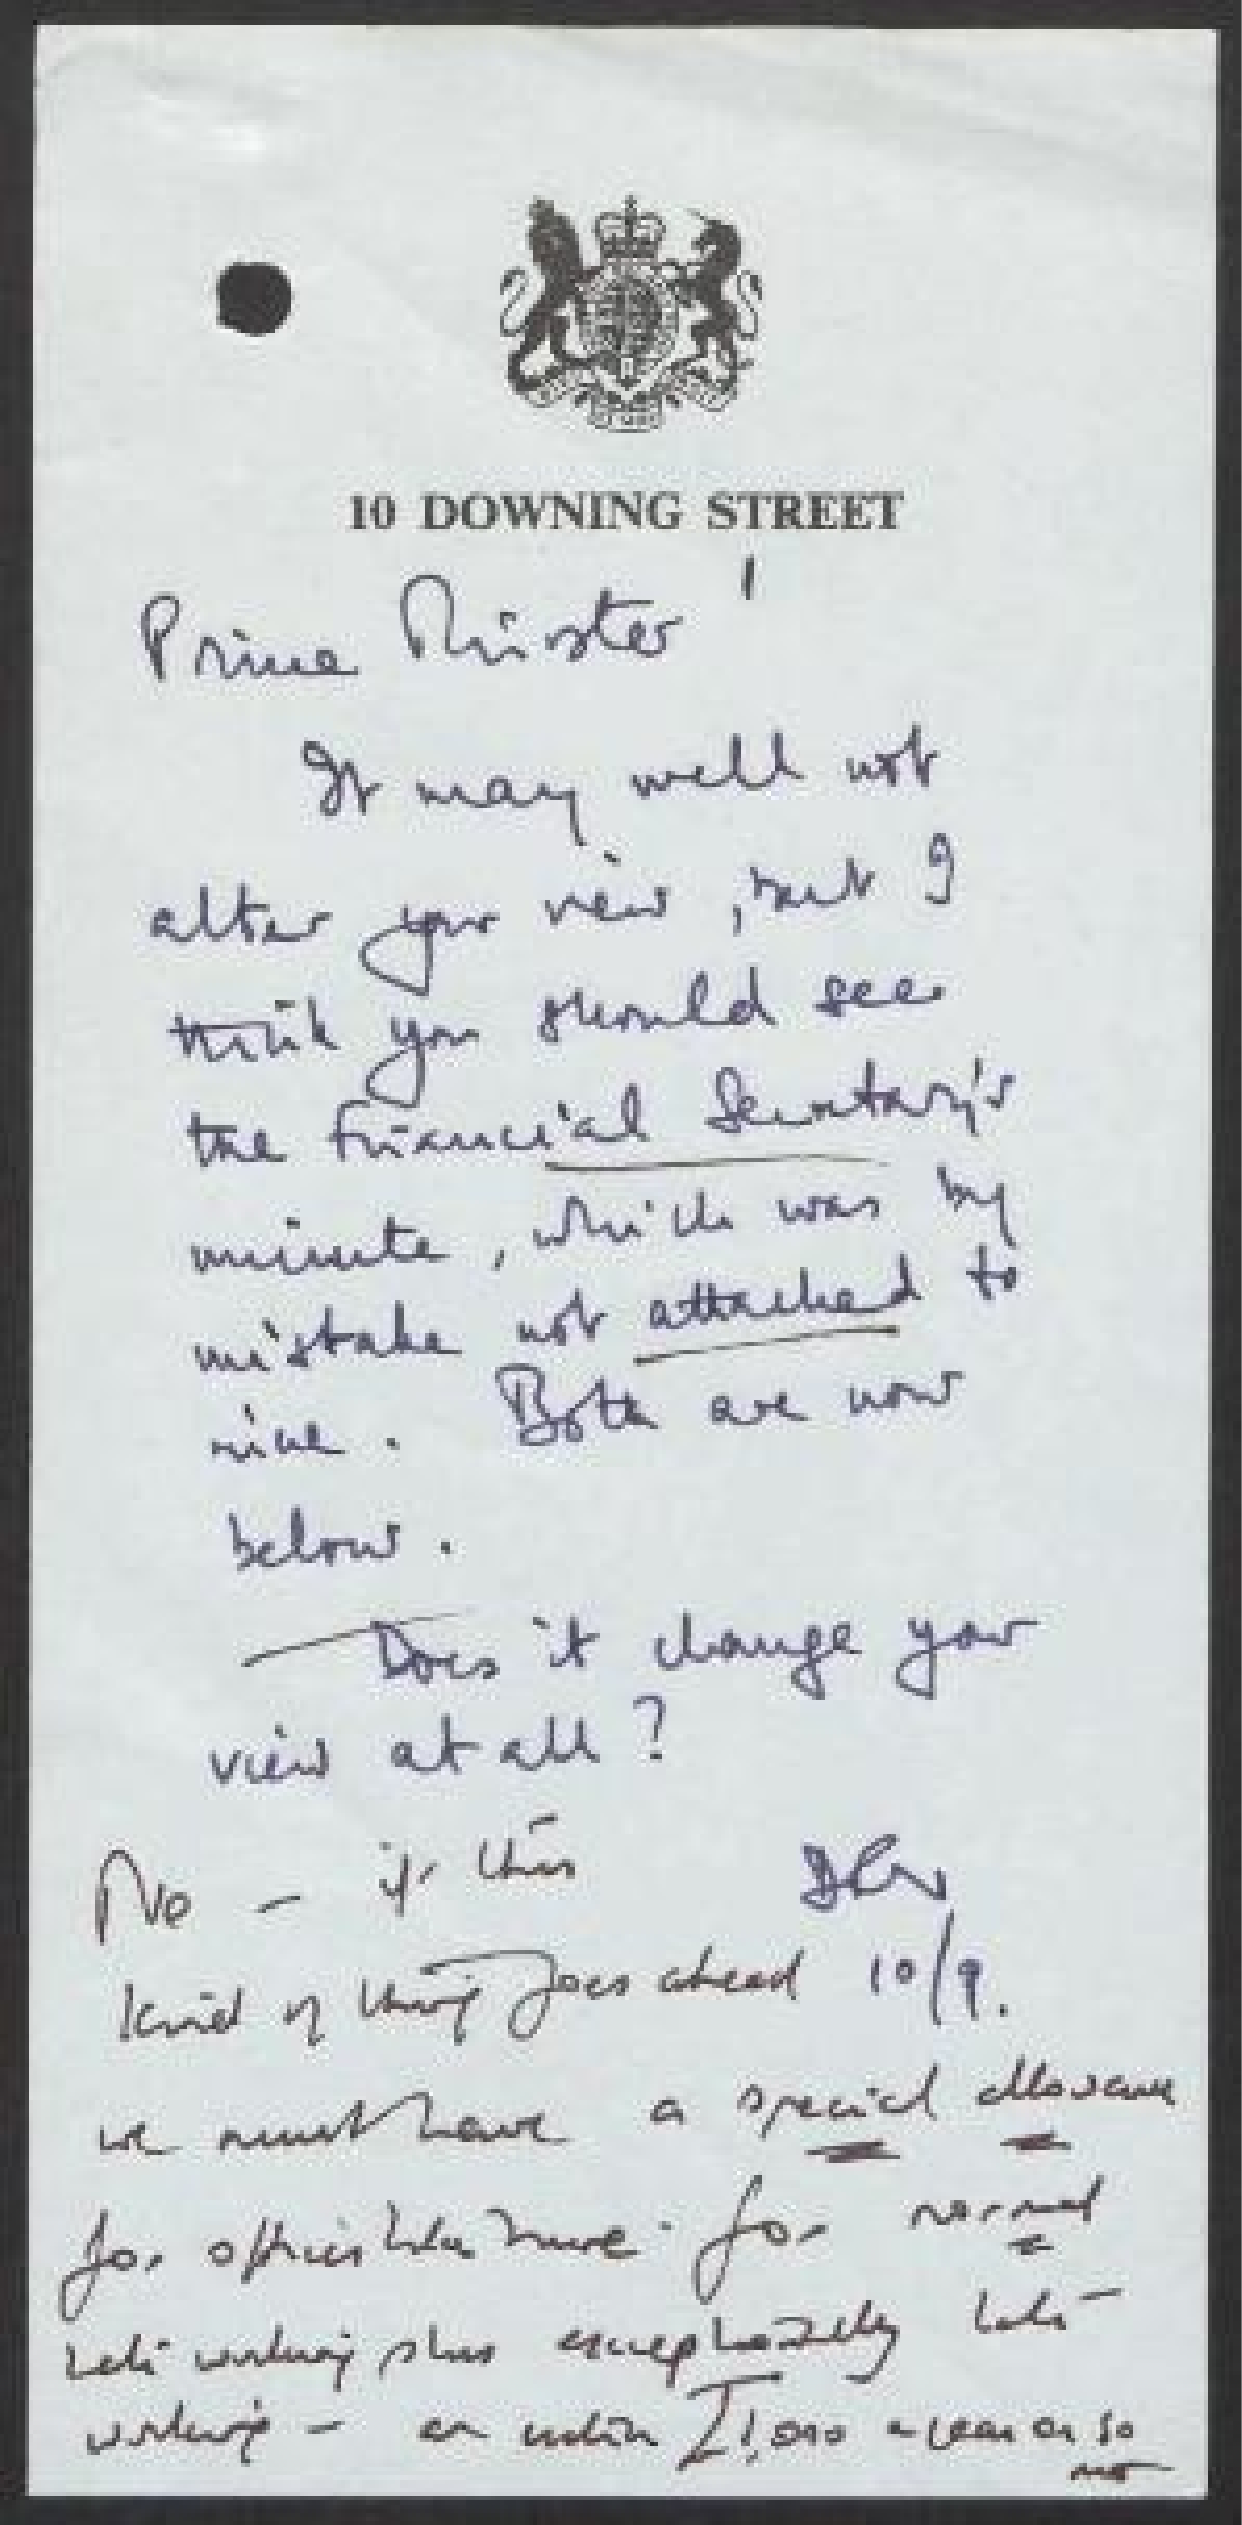 10 DOWNING STREET
Prime Minister
It may well not
alter your view, but I
think you should see
the Financial Secretary's
minute, which was by
mistake not attached to
mine. Both are now
below.
Does it change your
view at all?
No - if this
10/9.
kind of thing goes ahead
we must have a special allowance
for officials here - for normal
late working plus exceptionally late
working - an extra £1,000 a year or so
mt